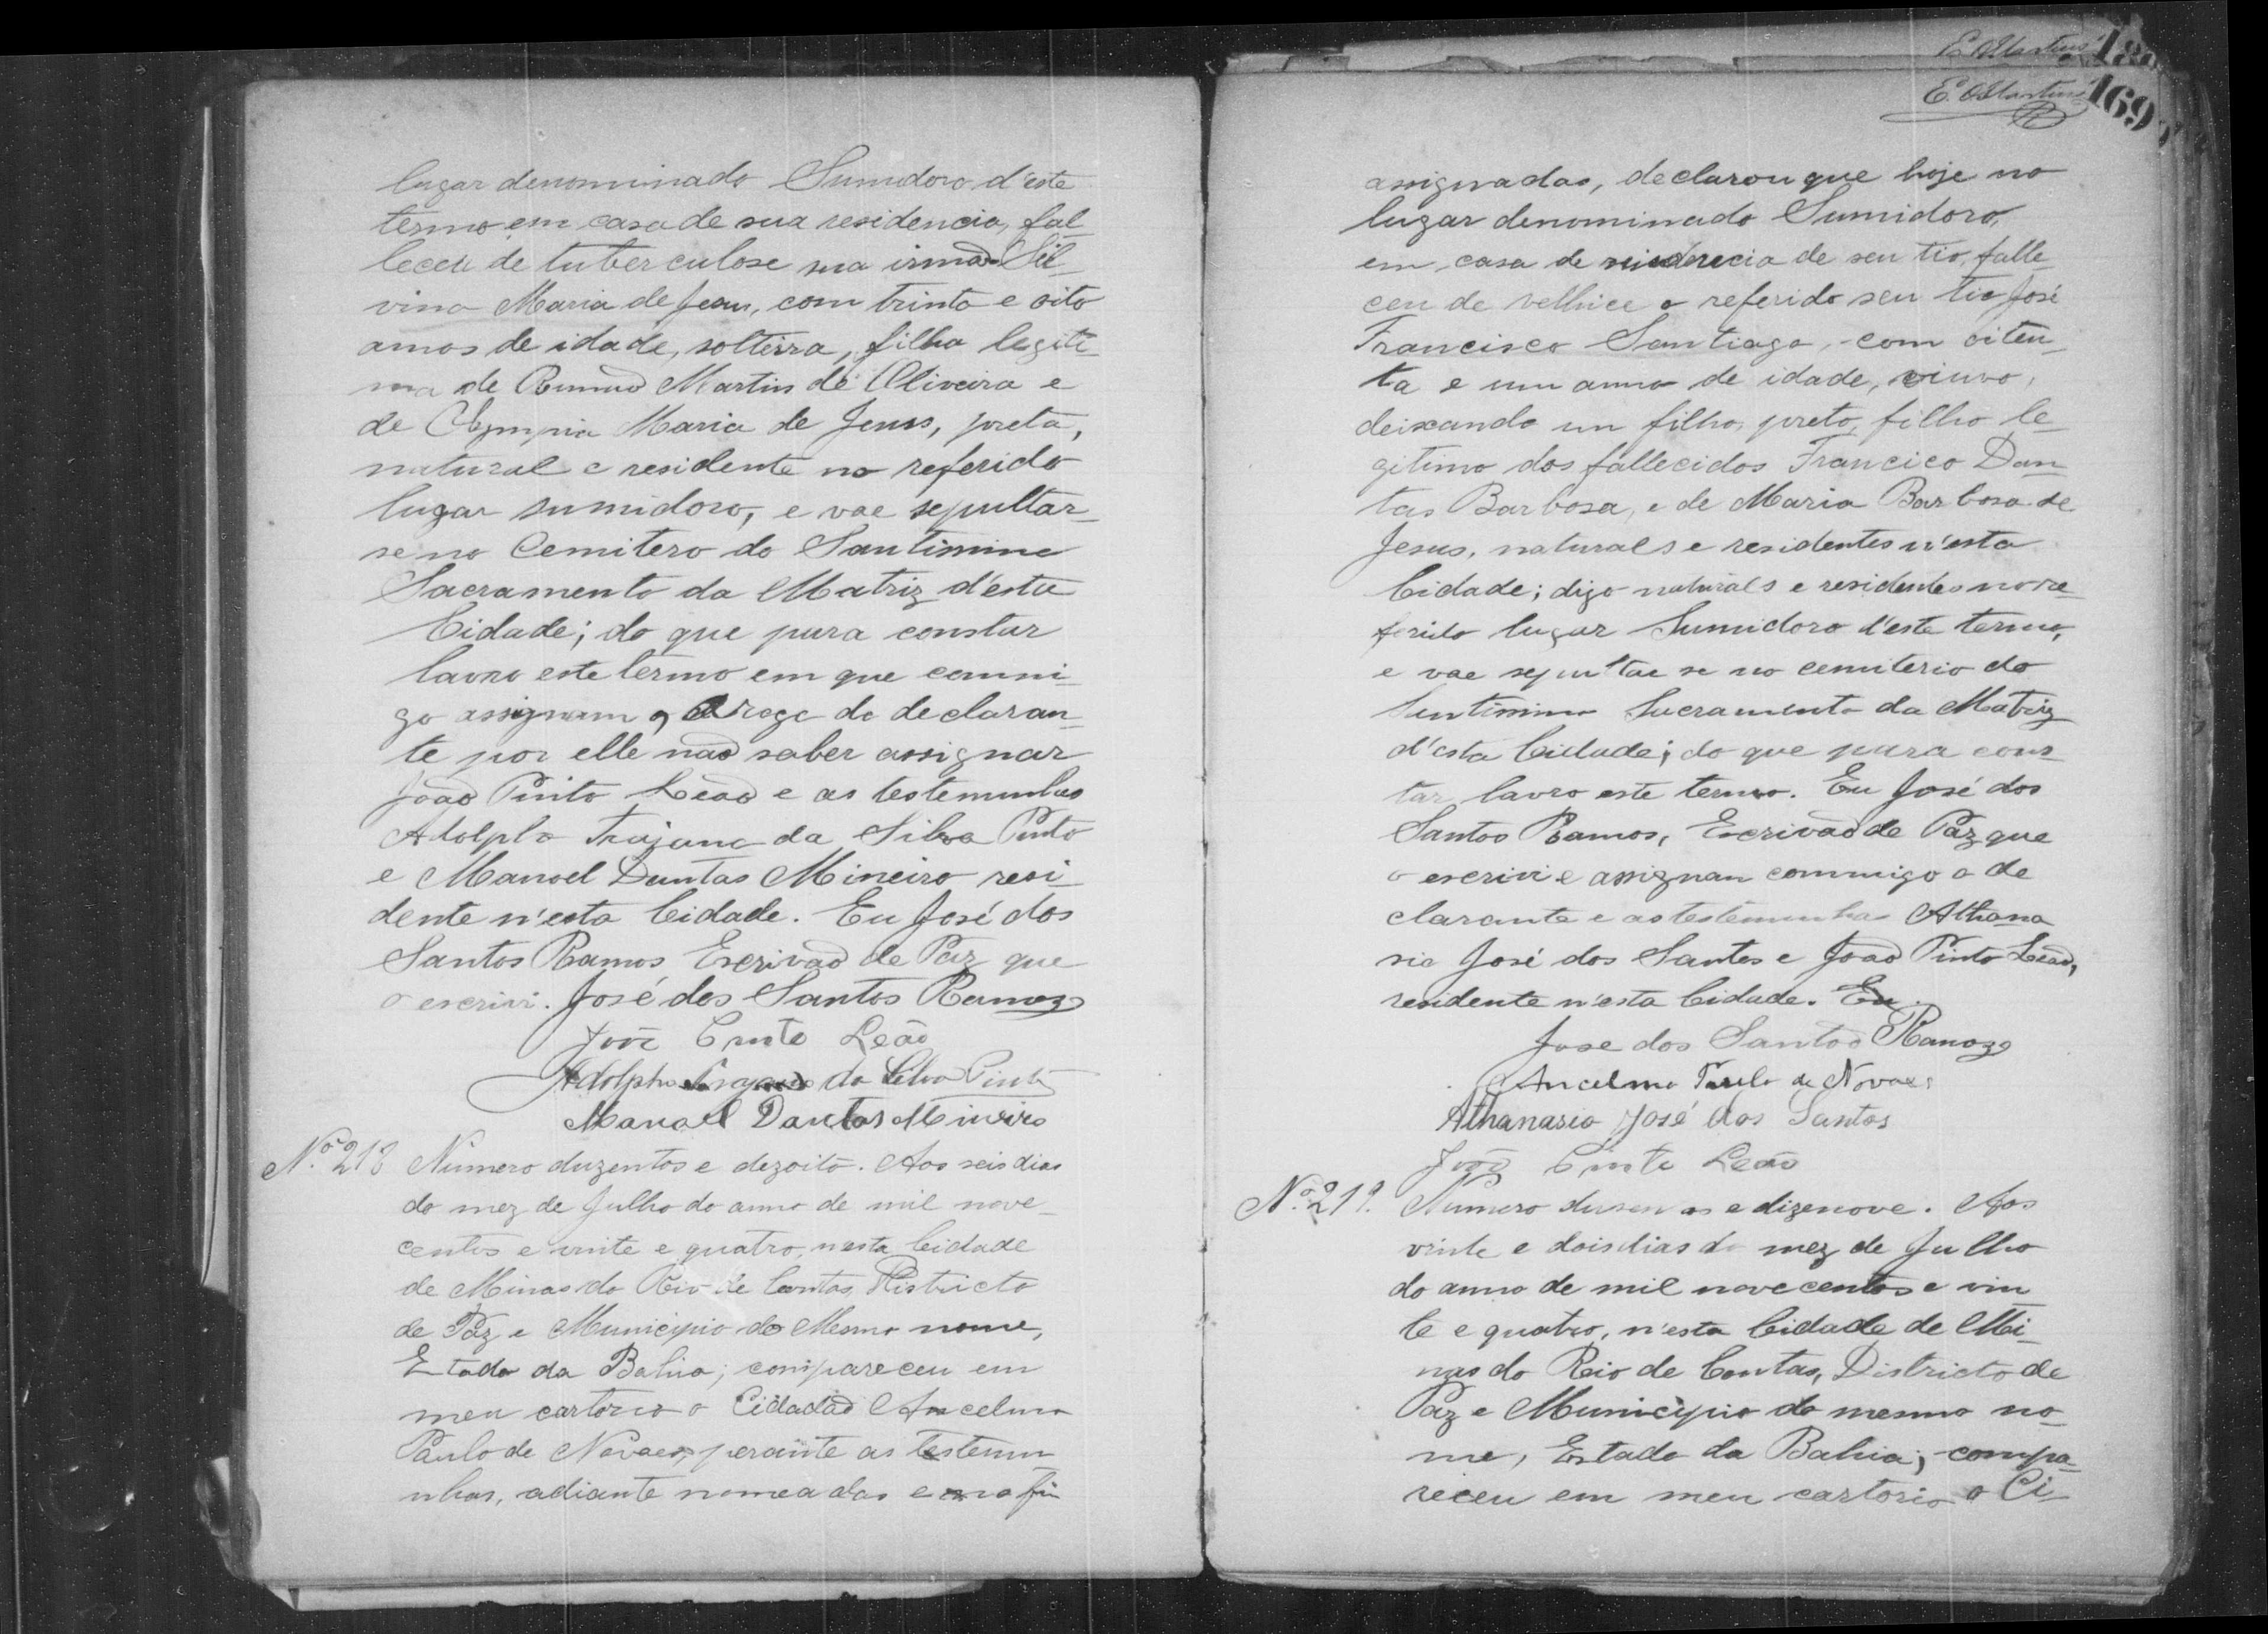 lugar denominado Sumidoro d'este
termo em casa de sua residencia, fal_
leceu de tuberculose sua irmã Sil_
vina Maria de Jesus, com trinta e oito
annos de idade, solteira, filha legiti_
ma de Martins de Oliveira e
de Olympia Maria de Jesus, preta,
natural e residente no referido
lugar sumidoro, e vae sepultar_
se no Cemitero do Santissimo
Sacramento da Matriz d'esta
Cidade; do que para constar
lavro este termo em que commi_
go assignam, a rogo do declaran_
te por elle não saber assignar
João Pinto Leão e as testemunhas
Adolpho Trajano da Silva Pinto
e Manoel Dantas Mineiro resi_
dente n'esta Cidade. Eu José dos
Santos Ramos Escrivão de Paz que
o escrivi. José dos Santos Ramos
João Pinto Leão
Adolpho Trajano da Silva Pinto
Manoel Dantas Mineiro
Nº 218 Número duzentos e dezoito. Aos seis dias
do mez de Julho do anno de mil nove_
centos e vinte e quatro, nesta Cidade
de Minas do Rio de Contas, Districto
de Paz e Municipio do Mesmo nome,
Estado da Bahia; compareceu em
meu cartorio o Cidadão Ancelmo
Paulo de Novaes, perante as testemu_
nhas, adiante nomeadas e no fim
E. Martins 180
E. Martins 169
assignadas, declarou que hoje no
lugar denominado Sumidoro,
em casa de residencia de seu tio, falle_
ceu de velhice o referido seu tio José
Francisco Santiago, com oiten_
ta e um anno de idade, viuvo,
deixando um filho, preto, filho le_
gitimo dos fallecidos Francico Dan_
tas Barbosa, e de Maria Barbosa de
Jesus, naturals e residentes n'esta
Cidade; digo naturals e residentes no re_
ferido lugar Sumidoro d'este termo,
e vae sepultar se no cemiterio do
Santissimo Sacramento da Matriz
d'esta Cidade; do que para cons_
tar lavro este termo. Eu José dos
Santos Ramos, Escrivão de Paz que
o escrivi e assignam commigo o de
clarante e as testemunhas Athana_
sio José dos Santos e João Pinto Leão,
residente n'esta Cidade. Eu
Jose dos Santos Ramos
Ancelmo Paulo de Novaes
Athanasio José dos Santos
João Pinto Leão
Nº 219. Numero dusentos e dizenove. Aos
vinte e dois dias do mez de Julho
do anno de mil novecentos e vin
te e quatro, n'esta Cidade de Mi_
nas do Rio de Contas, Districto de
Paz e Municipio do mesmo no_
me, Estado da Bahia; compa_
receu em meu cartorio o Ci_